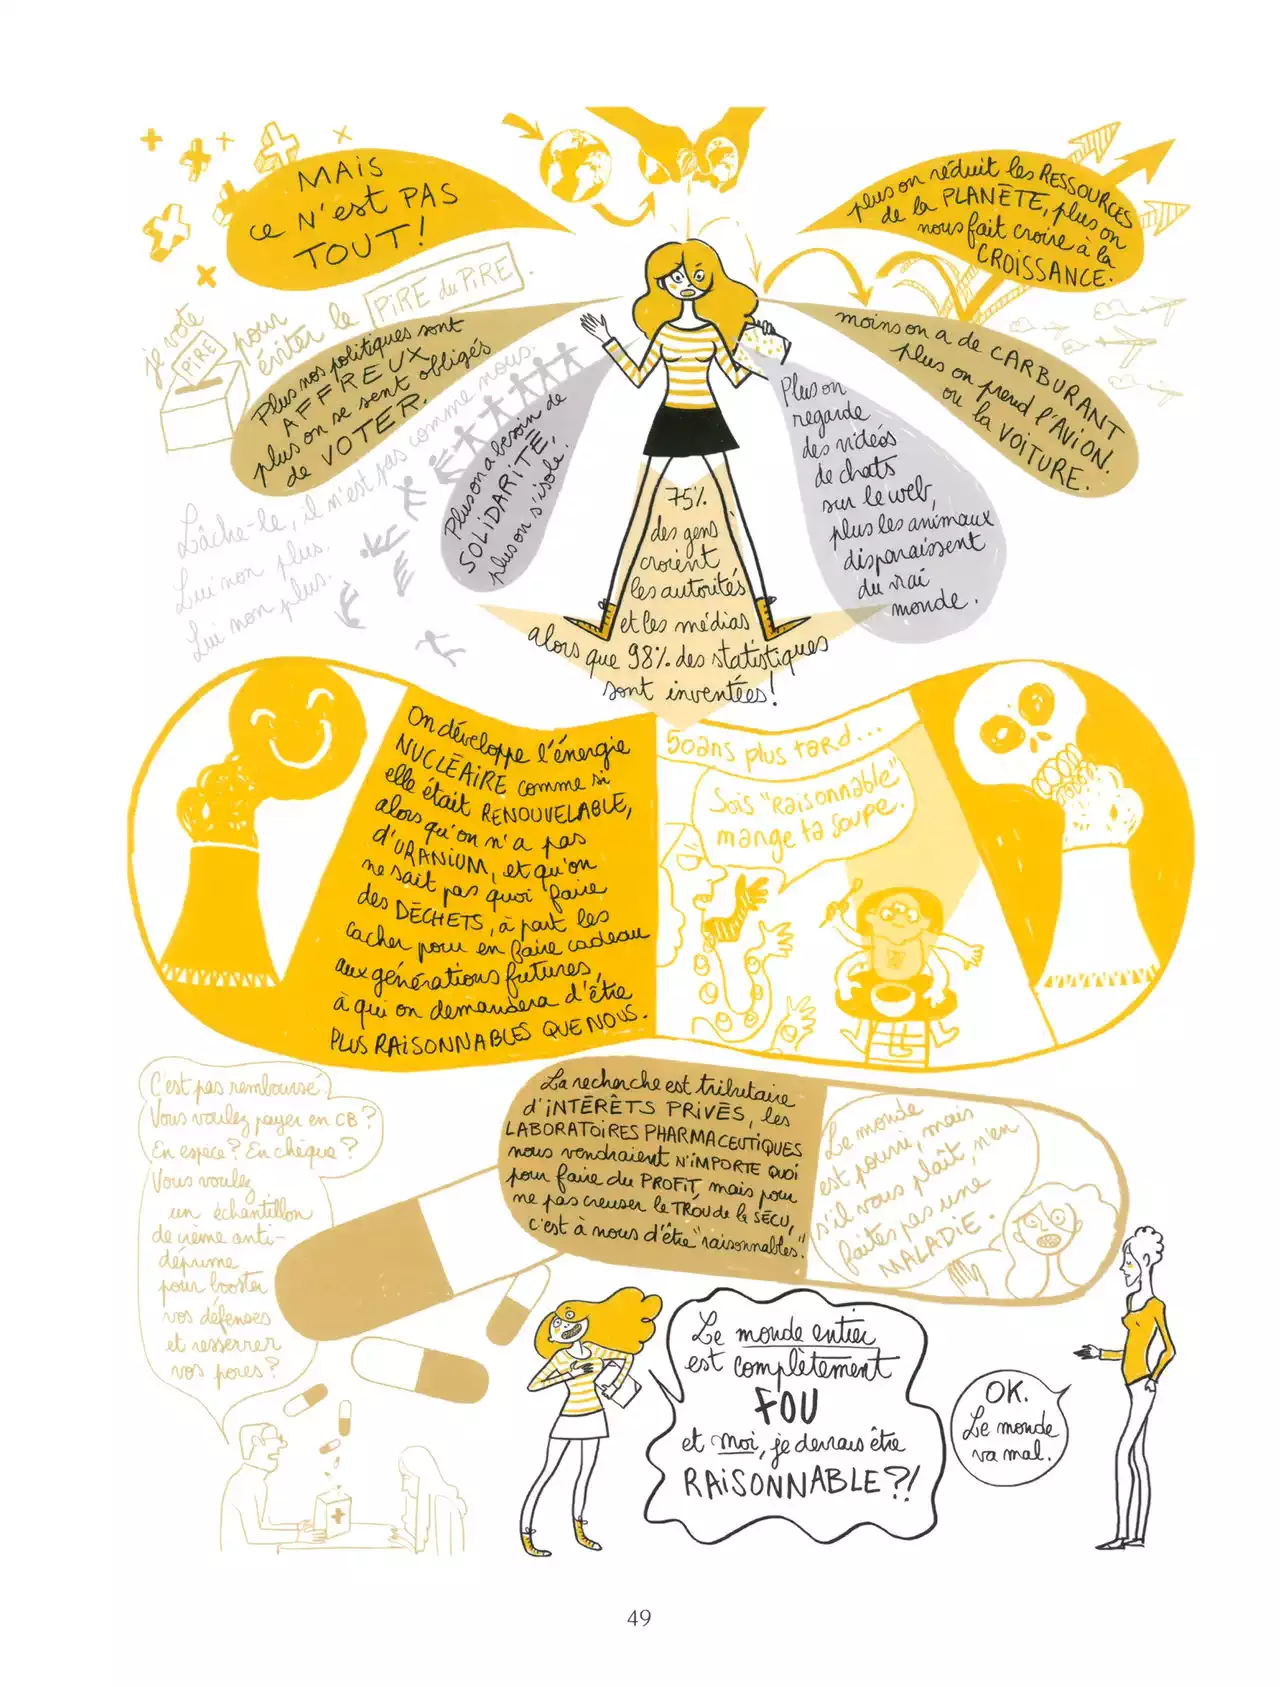 MAiS
ce N'est PAS
TOUT!
plus on réduit les RESSOURCES
de la PLANÈTE, plus on
nous fait croire à la
CROISSANCE.
je vote
PIRE
pour
éviter le PIRE du PIRE.
Plus nos politiques sont
AFFREUX
plus on se sent obligés
de VOTER.
moins on a de CARBURANT
plus on prend l'AViON.
ou la VOITURE.
Plus on a besoin de
SOLIDARITÉ,
plus on s'isole.
Plus on
regarde
des vidéos
de chats
sur le web,
plus les animaux
disparaissent
du vrai
monde.
Lâche-le, il n'est pas comme nous.
Lui non plus.
Lui non plus.
75%
des gens
croient
les autorités
et les médias
alors que 98% des statistiques
sont inventées!
On développe l'énergie
NUCLÉAIRE comme si
elle était RENOUVELABLE,
alors qu'on n'a pas
d'URANIUM, et qu'on
ne sait pas quoi faire
des DÉCHETS, à part les
cacher pour en faire cadeau
aux générations futures,
à qui on demandera d'être
PLUS RAISONNABLES QUE NOUS.
50 ans plus tard...
Sois "Raisonnable"
mange ta soupe.
C'est pas remboursé!
Vous voulez payer en CB?
En espèce? En chèque?
Vous voulez
un échantillon
de crème anti-
déprime
pour booster
vos défenses
et resserrer
vos pores?
La recherche est tributaire
d'iNTÉRÊTS PRiVÉS, les
LABORATOiRES PHARMACEUTiQUES
nous vendraient N'iMPORTE QUOi
pour faire du PROFiT, mais pour
ne pas creuser le TROU de la SÉCU,
c'est à nous d'être "raisonnables."
Le monde
est pourri, mais
s'il vous plaît, n'en
faites pas une
MALADiE.
Le monde entier
est complètement
FOU
et moi, je devrais être
RAiSONNABLE?!
OK.
Le monde
va mal.
49